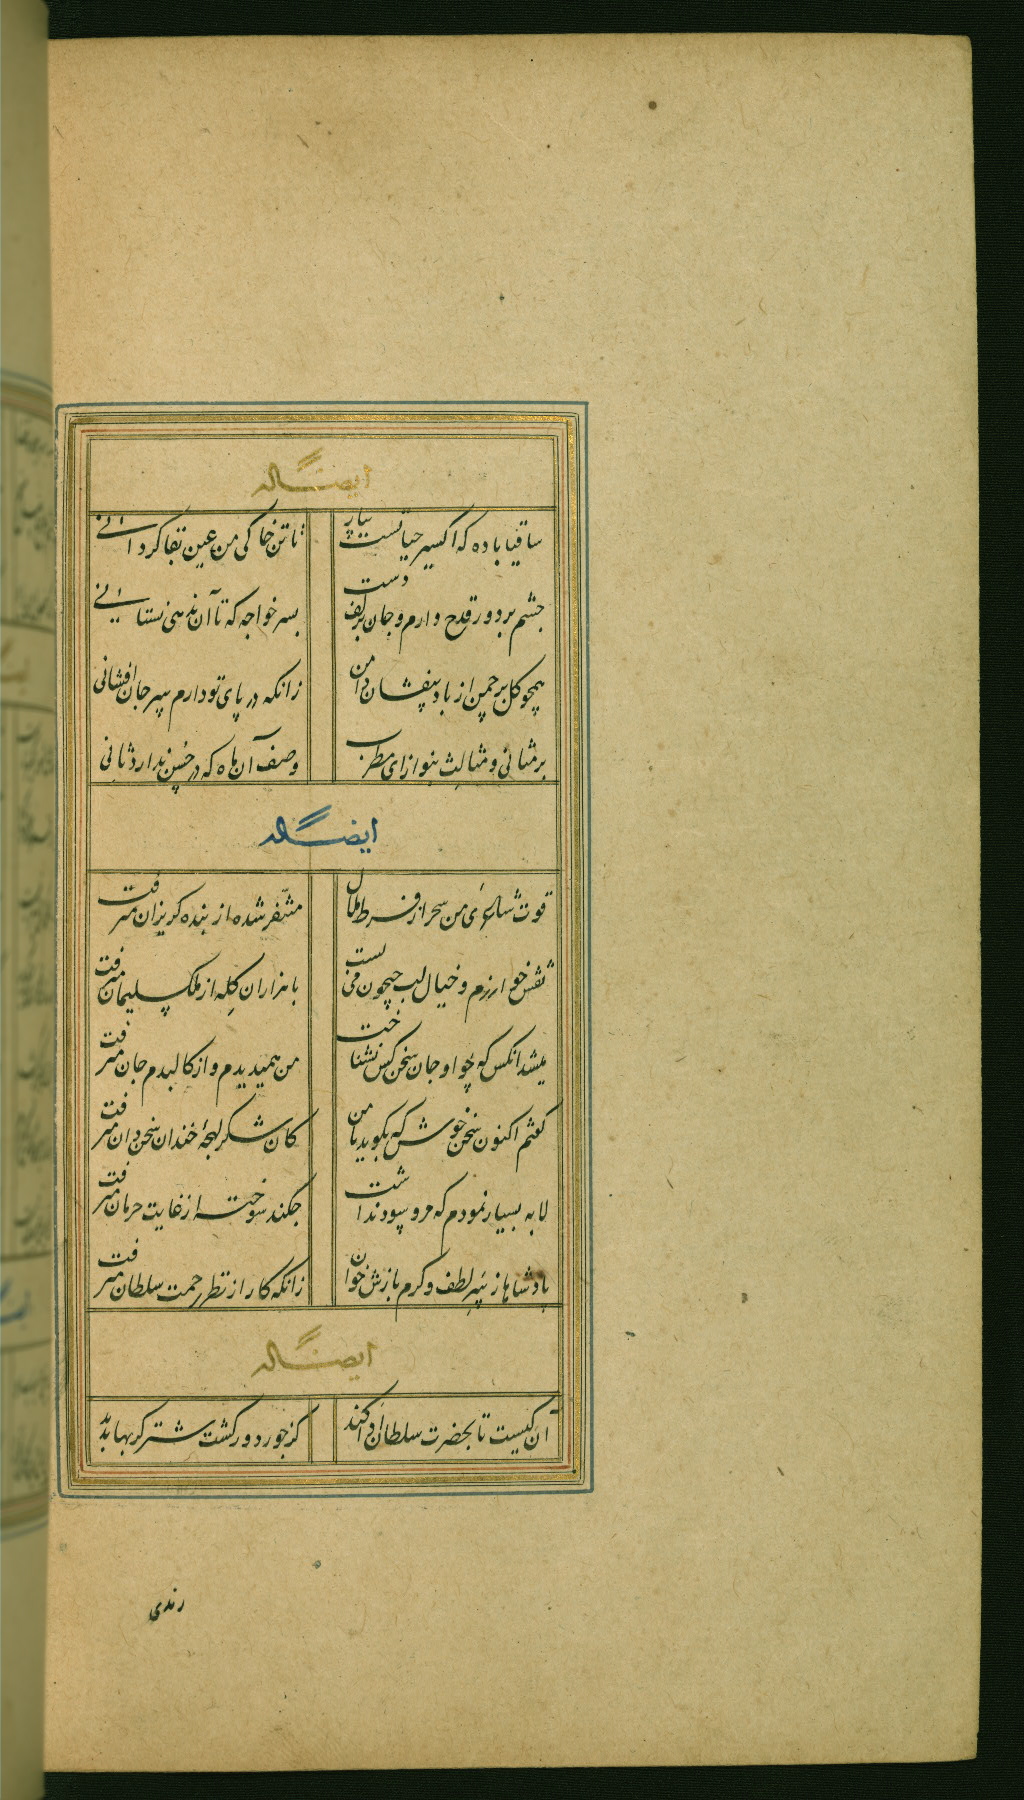 ایضاً له
ساقیا باده که اکسیر حیاتست بیار
تا تن خاکی من عین بقا گردانی
چشم بر دور قدح دارم و جان بر کف دست
بسر خواجه که تا آن ندهی نستانی
همچو گل بر چمن از باد بیفشان دامن
زانکه در پای تو دارم سر جان افشانی
بر مثانی و مثالث بنواز ای مطرب
وصف آن ماه که در حسن ندارد ثانی
ایضاً له
قوت شاعری من سحر از فرط ملال
متنفر شده از بنده گریزان میرفت
نقش خوارزم و خیال لب جیحون می بست
با هزاران گله از ملک سلیمان میرفت
میشد انکس که چو او جان سخن کس نشناخت
من همیدیدم و از کالبدم جان میرفت
گفتم اکنون سخن خوش که بگوید با من
کان شکر لهجهٔ خندان سخن دان میرفت
لابه بسیار نمودم که مرو سود نداشت
چکند سوخته از غایت حرمان میرفت
پادشاها ز سر لطف و کرم بازش خوان
زانکه کار از نظر رحمت سلطان میرفت
ایضاً له
آن کیست تا بحضرت سلطان ادا کند
کز جور دور گشت شتر گربها بدید
رندی